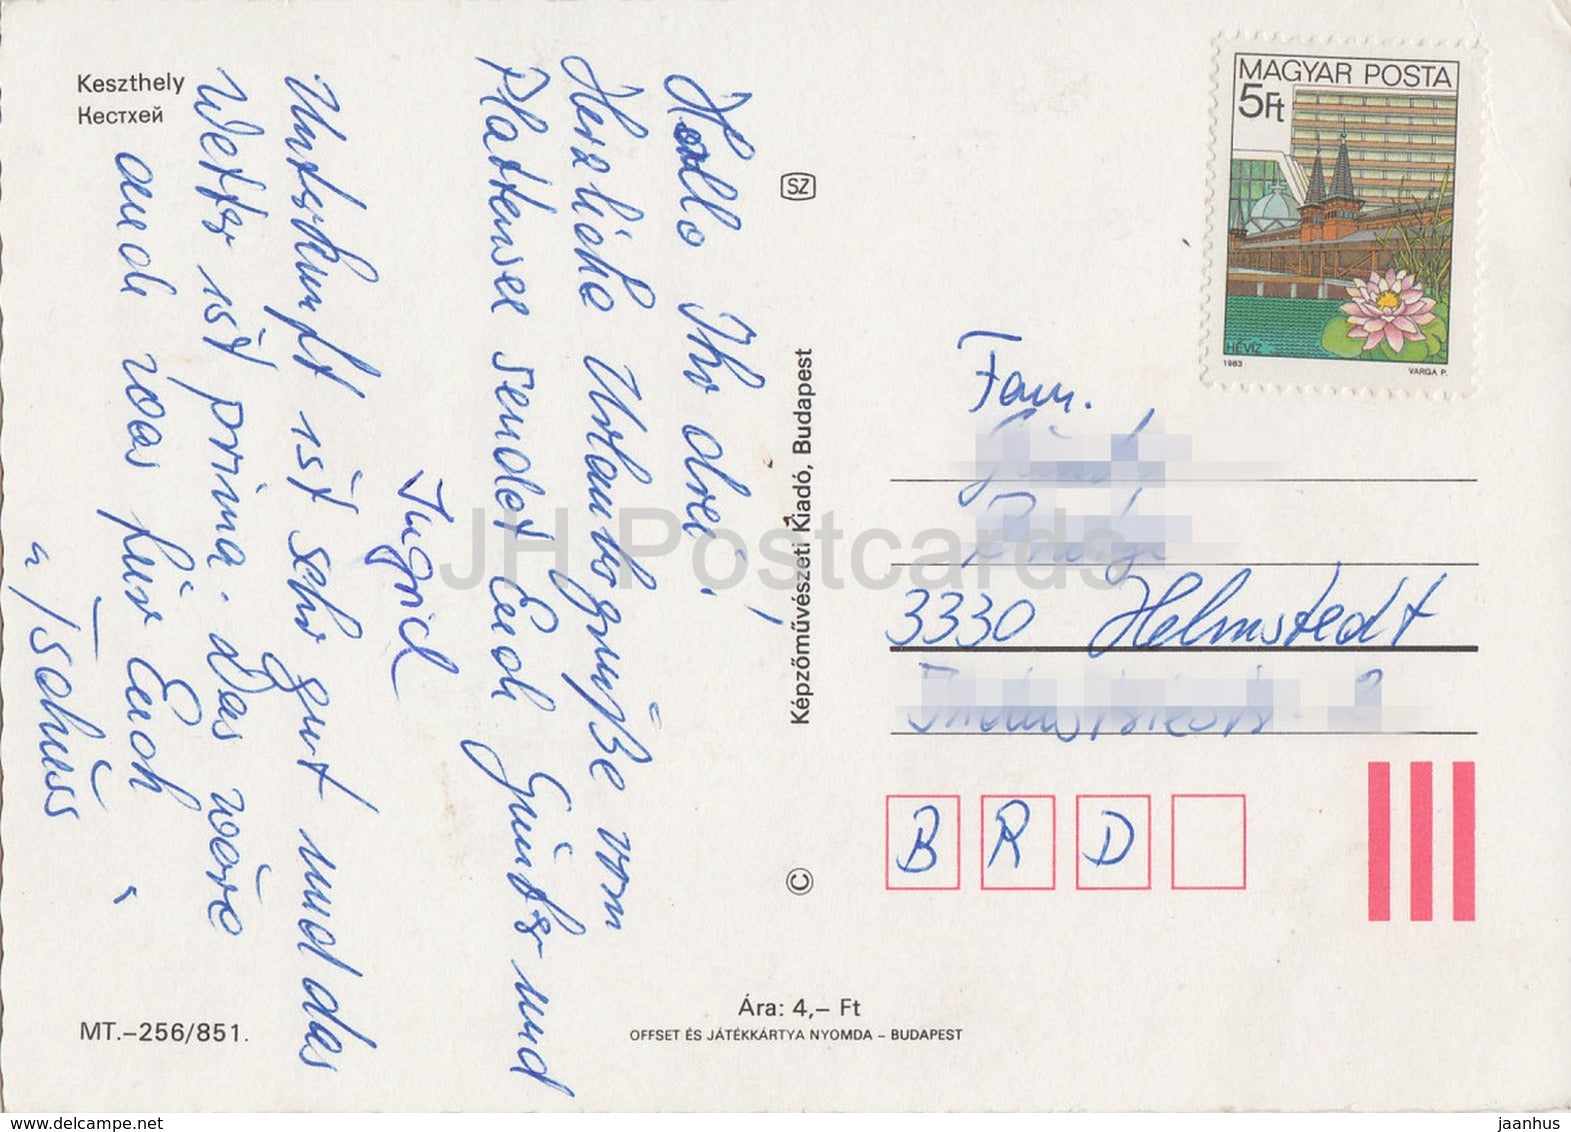 Keszthely
Кестхей
Hallo Ihr drei!
Herzliche Urlaubsgrüße vom
Plattensee sendet Euch Günter und
Ingrid
Unterkunft ist sehr gut und das
Wetter ist prima. Das wäre
auch was für Euch
Tschüss
SZ
Képzőművészeti Kiadó, Budapest
©
MAGYAR POSTA
5Ft
HÉVÍZ
1983
VARGA P.
Fam.
3330 Helmstedt
B R D
MT.–256/851.
Ára: 4,– Ft
OFFSET ÉS JÁTÉKKÁRTYA NYOMDA – BUDAPEST
JH Postcards
www.delcampe.net
jaanhus